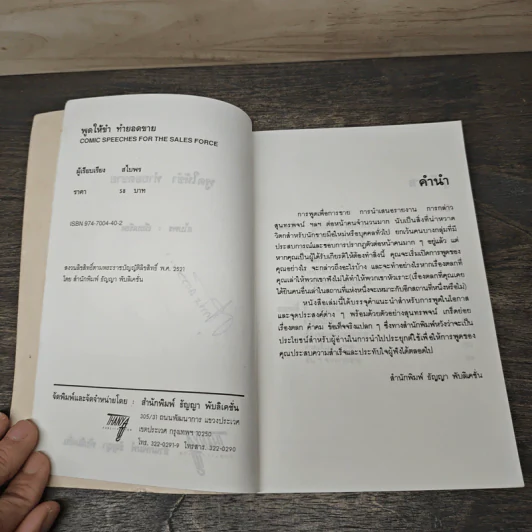 พูดให้ขำ ทำยอดขาย
COMIC SPEECHES FOR THE SALES FORCE
ผู้เรียบเรียง สไบพร
ราคา 58 บาท
ISBN 974-7004-40-2
สงวนลิขสิทธิ์ตามพระราชบัญญัติลิขสิทธิ์ พ.ศ. 2521
โดย สำนักพิมพ์ ธัญญา พับลิเคชั่น
จัดพิมพ์และจัดจำหน่ายโดย : สำนักพิมพ์ ธัญญา พับลิเคชั่น
305/31 ถนนพัฒนาการ แขวงประเวศ
เขตประเวศ กรุงเทพฯ 10250
โทร. 322-0291-9 โทรสาร. 322-0290
THANYA
คำนำ
การพูดเพื่อการขาย การนำเสนอรายงาน การกล่าว
สุนทรพจน์ ฯลฯ ต่อหน้าคนจำนวนมาก นับเป็นสิ่งที่น่าหวาด
วิตกสำหรับนักขายมือใหม่หรือบุคคลทั่วไป ยกเว้นคนบางกลุ่มที่มี
ประสบการณ์และชอบการปรากฏตัวต่อหน้าคนมาก ๆ อยู่แล้ว แต่
หากคุณเป็นผู้ได้รับเกียรติให้ต้องทำสิ่งนี้ คุณจะเริ่มเปิดการพูดของ
คุณอย่างไร จะกล่าวถึงอะไรบ้าง และจะทำอย่างไรหากเรื่องตลกที่
คุณเล่าให้พวกเขาฟังไม่ได้ทำให้พวกเขาหัวเราะ(เรื่องตลกที่คุณเคย
ได้ยินคนอื่นเล่าในสถานที่แห่งหนึ่งจะเหมาะกับอีกสถานที่หนึ่งหรือไม่)
หนังสือเล่มนี้ได้บรรจุคำแนะนำสำหรับการพูดในโอกาส
และจุดประสงค์ต่าง ๆ พร้อมด้วยตัวอย่างสุนทรพจน์ เกร็ดย่อย
เรื่องตลก คำคม ข้อเท็จจริงแปลก ๆ ซึ่งทางสำนักพิมพ์หวังว่าจะเป็น
ประโยชน์สำหรับผู้อ่านในการนำไปประยุกต์ใช้เพื่อให้การพูดของ
คุณประสบความสำเร็จและประทับใจผู้ฟังได้ตลอดไป
สำนักพิมพ์ ธัญญา พับลิเคชั่น